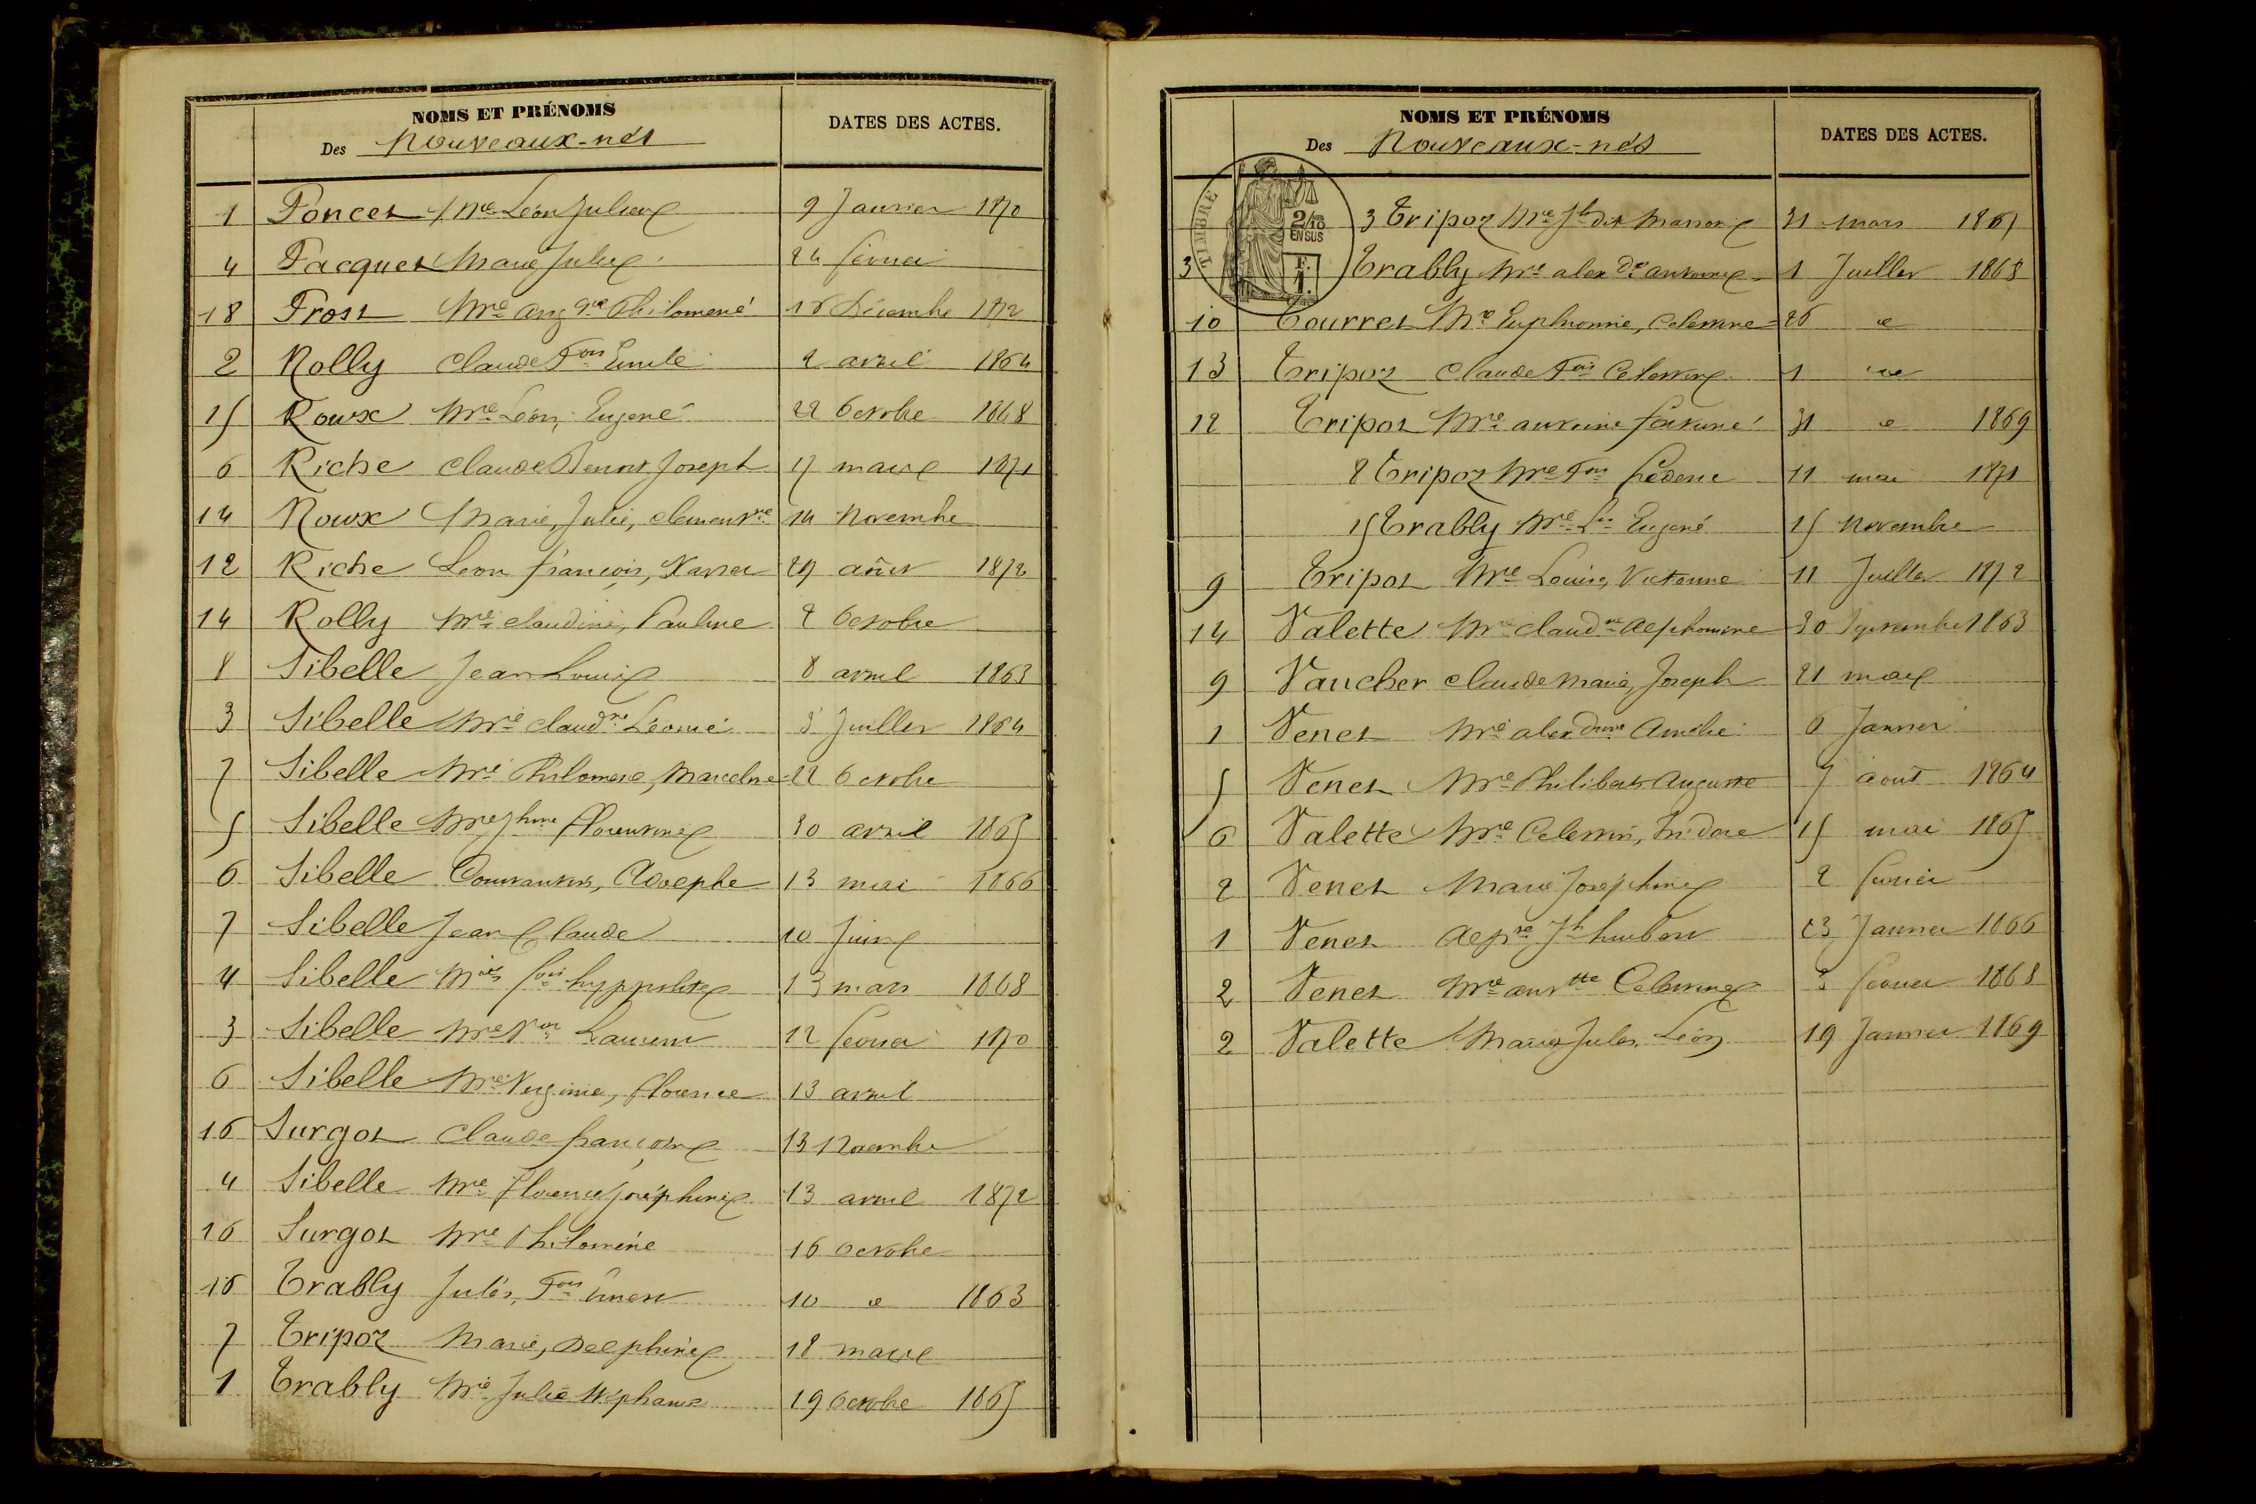 NOMS ET PRÉNOMS
Des Nouveaux-nés
DATES DES ACTES.
1 Poncet Mie Léon Julien 9 Janvier 1870
4 Pacquet Marie Julie 24 février
18 Prost Mie Philomène 18 Décembre 1872
2 Rolly Claude Fois Emile 2 avril 1864
15 Roux Mie Léon, Eugène 22 Octobre 1868
6 Riche Claude Benoit Joseph 17 mars 1871
14 Roux Marie, Julie, Clementne 14 Novembre
12 Riche Léon François, Xavier 29 août 1872
14 Rolly Mie Claudine, Pauline 2 Octobre
8 Sibelle Jean Louis 8 avril 1863
3 Sibelle Mie Claudne Léonie 3 Juillet 1864
7 Sibelle Mie Philomène, Marceline 22 Octobre
5 Sibelle Mie Jhine Florentine 30 avril 1865
6 Sibelle Constantin, Adolphe 13 mai 1866
7 Sibelle Jean Claude 10 Juin
4 Sibelle fois hyppolite 13 mars 1868
3 Sibelle Mie Laurent 12 février 1870
6 Sibelle Mie Virginie, Florence 13 avril
16 Surgot Claude françoise 13 Novembre
4 Sibelle Mie Florence Joséphine 13 avril 1872
16 Surgot Mie Philomène 16 Octobre
10 Trably Jules, Fois Ernest 10 d 1863
7 Tripoz Marie, Delphine 18 mars
1 Trably Mie Julie Stéphanie 19 Octobre 1865
NOMS ET PRÉNOMS
Des Nouveaux-nés
DATES DES ACTES.
TIMBRE
2/10
EN SUS
F.
1.
3 Tripoz Mie Jh dit 31 mars 1867
3 Trably Mie alexdre antoine 1 Juillet 1868
10 Tourret Mie Euphrosine, Celestine 26 d
13 Tripoz Claude Fois Celestin 1 d
12 Tripot Mie antoine fortuné 31 d 1869
8 Tripoz Mie Fois fréderic 11 mai 1871
15 Trably Mie Ls Eugène 15 Novembre
9 Tripot Mie Louise, Victorine 11 Juillet 1872
14 Valette Mie Claudne Alphonsine 30 Septembre 1863
9 Vaucher Claude Marie, Joseph 21 mars
1 Venet Mie alexdrine Amélie 6 Janvier
5 Venet Mie Philibert Auguste 7 août 1864
6 Valette Mie Celestin, Isidore 15 mai 1865
2 Venet Marie Joséphine 2 février
1 Venet Jh humbert 23 Janvier 1866
2 Venet Mie anttte Celestine 3 février 1868
2 Valette Marie Jules, Léon 19 Janvier 1869